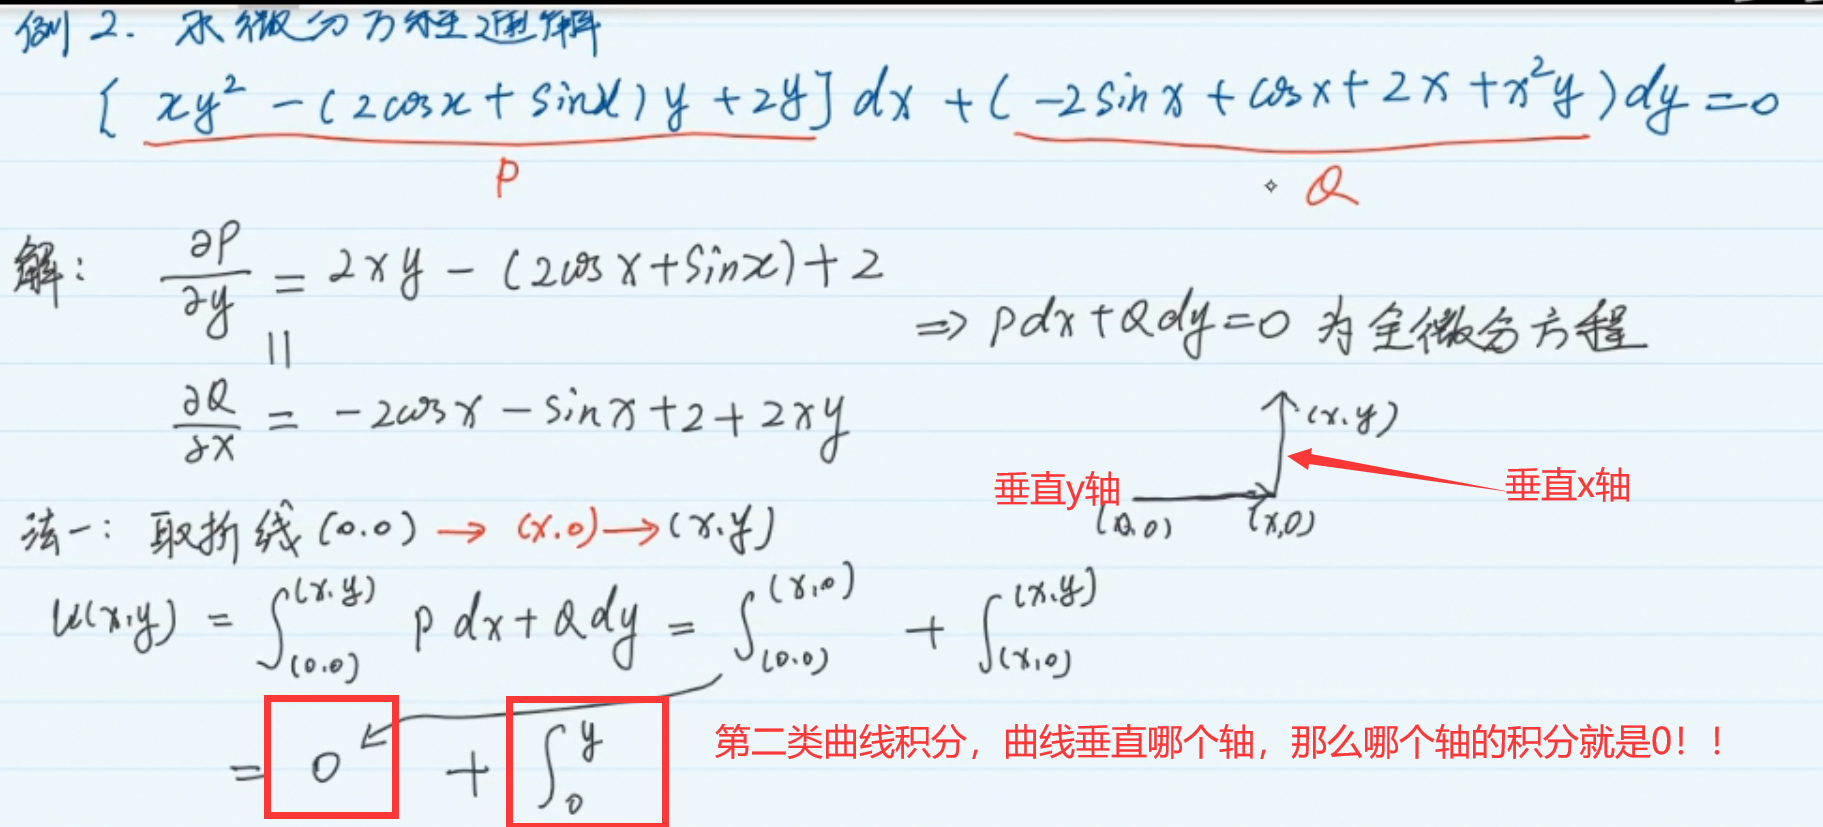 例2. 求微分方程通解
[xy² - (2cosx + sinx)y + 2y]dx + (-2sinx + cosx + 2x + x²y)dy = 0
P Q
解: ∂P/∂y = 2xy - (2cosx + sinx) + 2
|| ⇒ Pdx + Qdy = 0 为全微分方程
∂Q/∂x = -2cosx - sinx + 2 + 2xy
(x.y)
垂直y轴 垂直x轴
(0,0) (x,0)
法一: 取折线 (0.0) → (x.0) → (x.y)
u(x,y) = ∫_(0.0)^(x.y) Pdx + Qdy = ∫_(0.0)^(x,0) + ∫_(x,0)^(x.y)
= 0 + ∫_0^y
第二类曲线积分，曲线垂直哪个轴，那么哪个轴的积分就是0！！